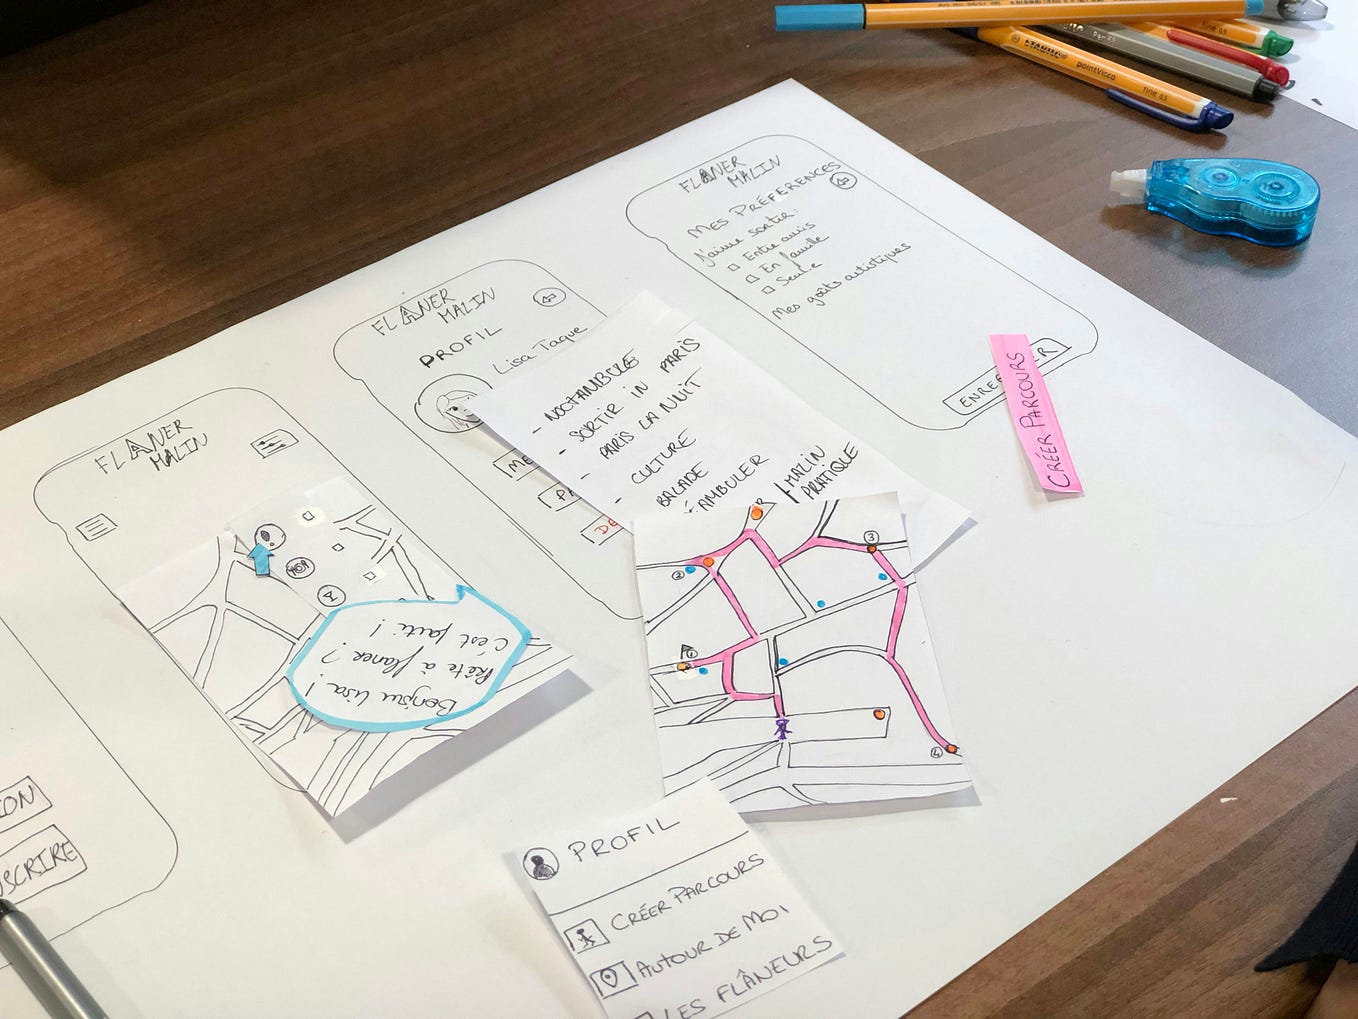 FLANER
MALIN
MES PRÉFÉRENCES
J'aime sortir:
Entre amis
En famille
Seul·e
Mes goûts artistiques
CRÉER PARCOURS
FLANER
MALIN
PROFIL
Lisa Taque
ME
PA
DE
- NOCTAMBULE
- SORTIR IN PARIS
- PARIS LA NUIT
- CULTURE
BALADE
MALIN
PRATIQUE
FLANER
MALIN
Bonjour Lisa !
Prête à flaner ?
C'est parti !
1
2
3
4
PROFIL
CRÉER PARCOURS
AUTOUR DE MOI
LES FLÂNEURS
ION
SCRIRE
STABILO
pointVisco
fine 0.5